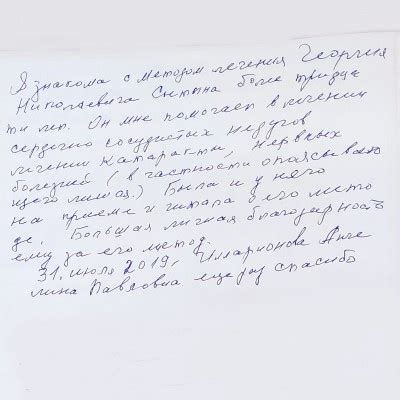 Я знакома с методом лечения Георгия
Николаевича Сытина более тридца
ти лет. Он мне помогает в лечении
сердечно сосудистых недугов
лечении катаракты, нервных
болезней (в частности опоясываю
щего лишая.) Была и у него
на приеме и читала о его мето
де. Большая личная благодарность
ему за его метод.
31. июля 2019, Илларионова Анге
лина Павловна еще раз спасибо